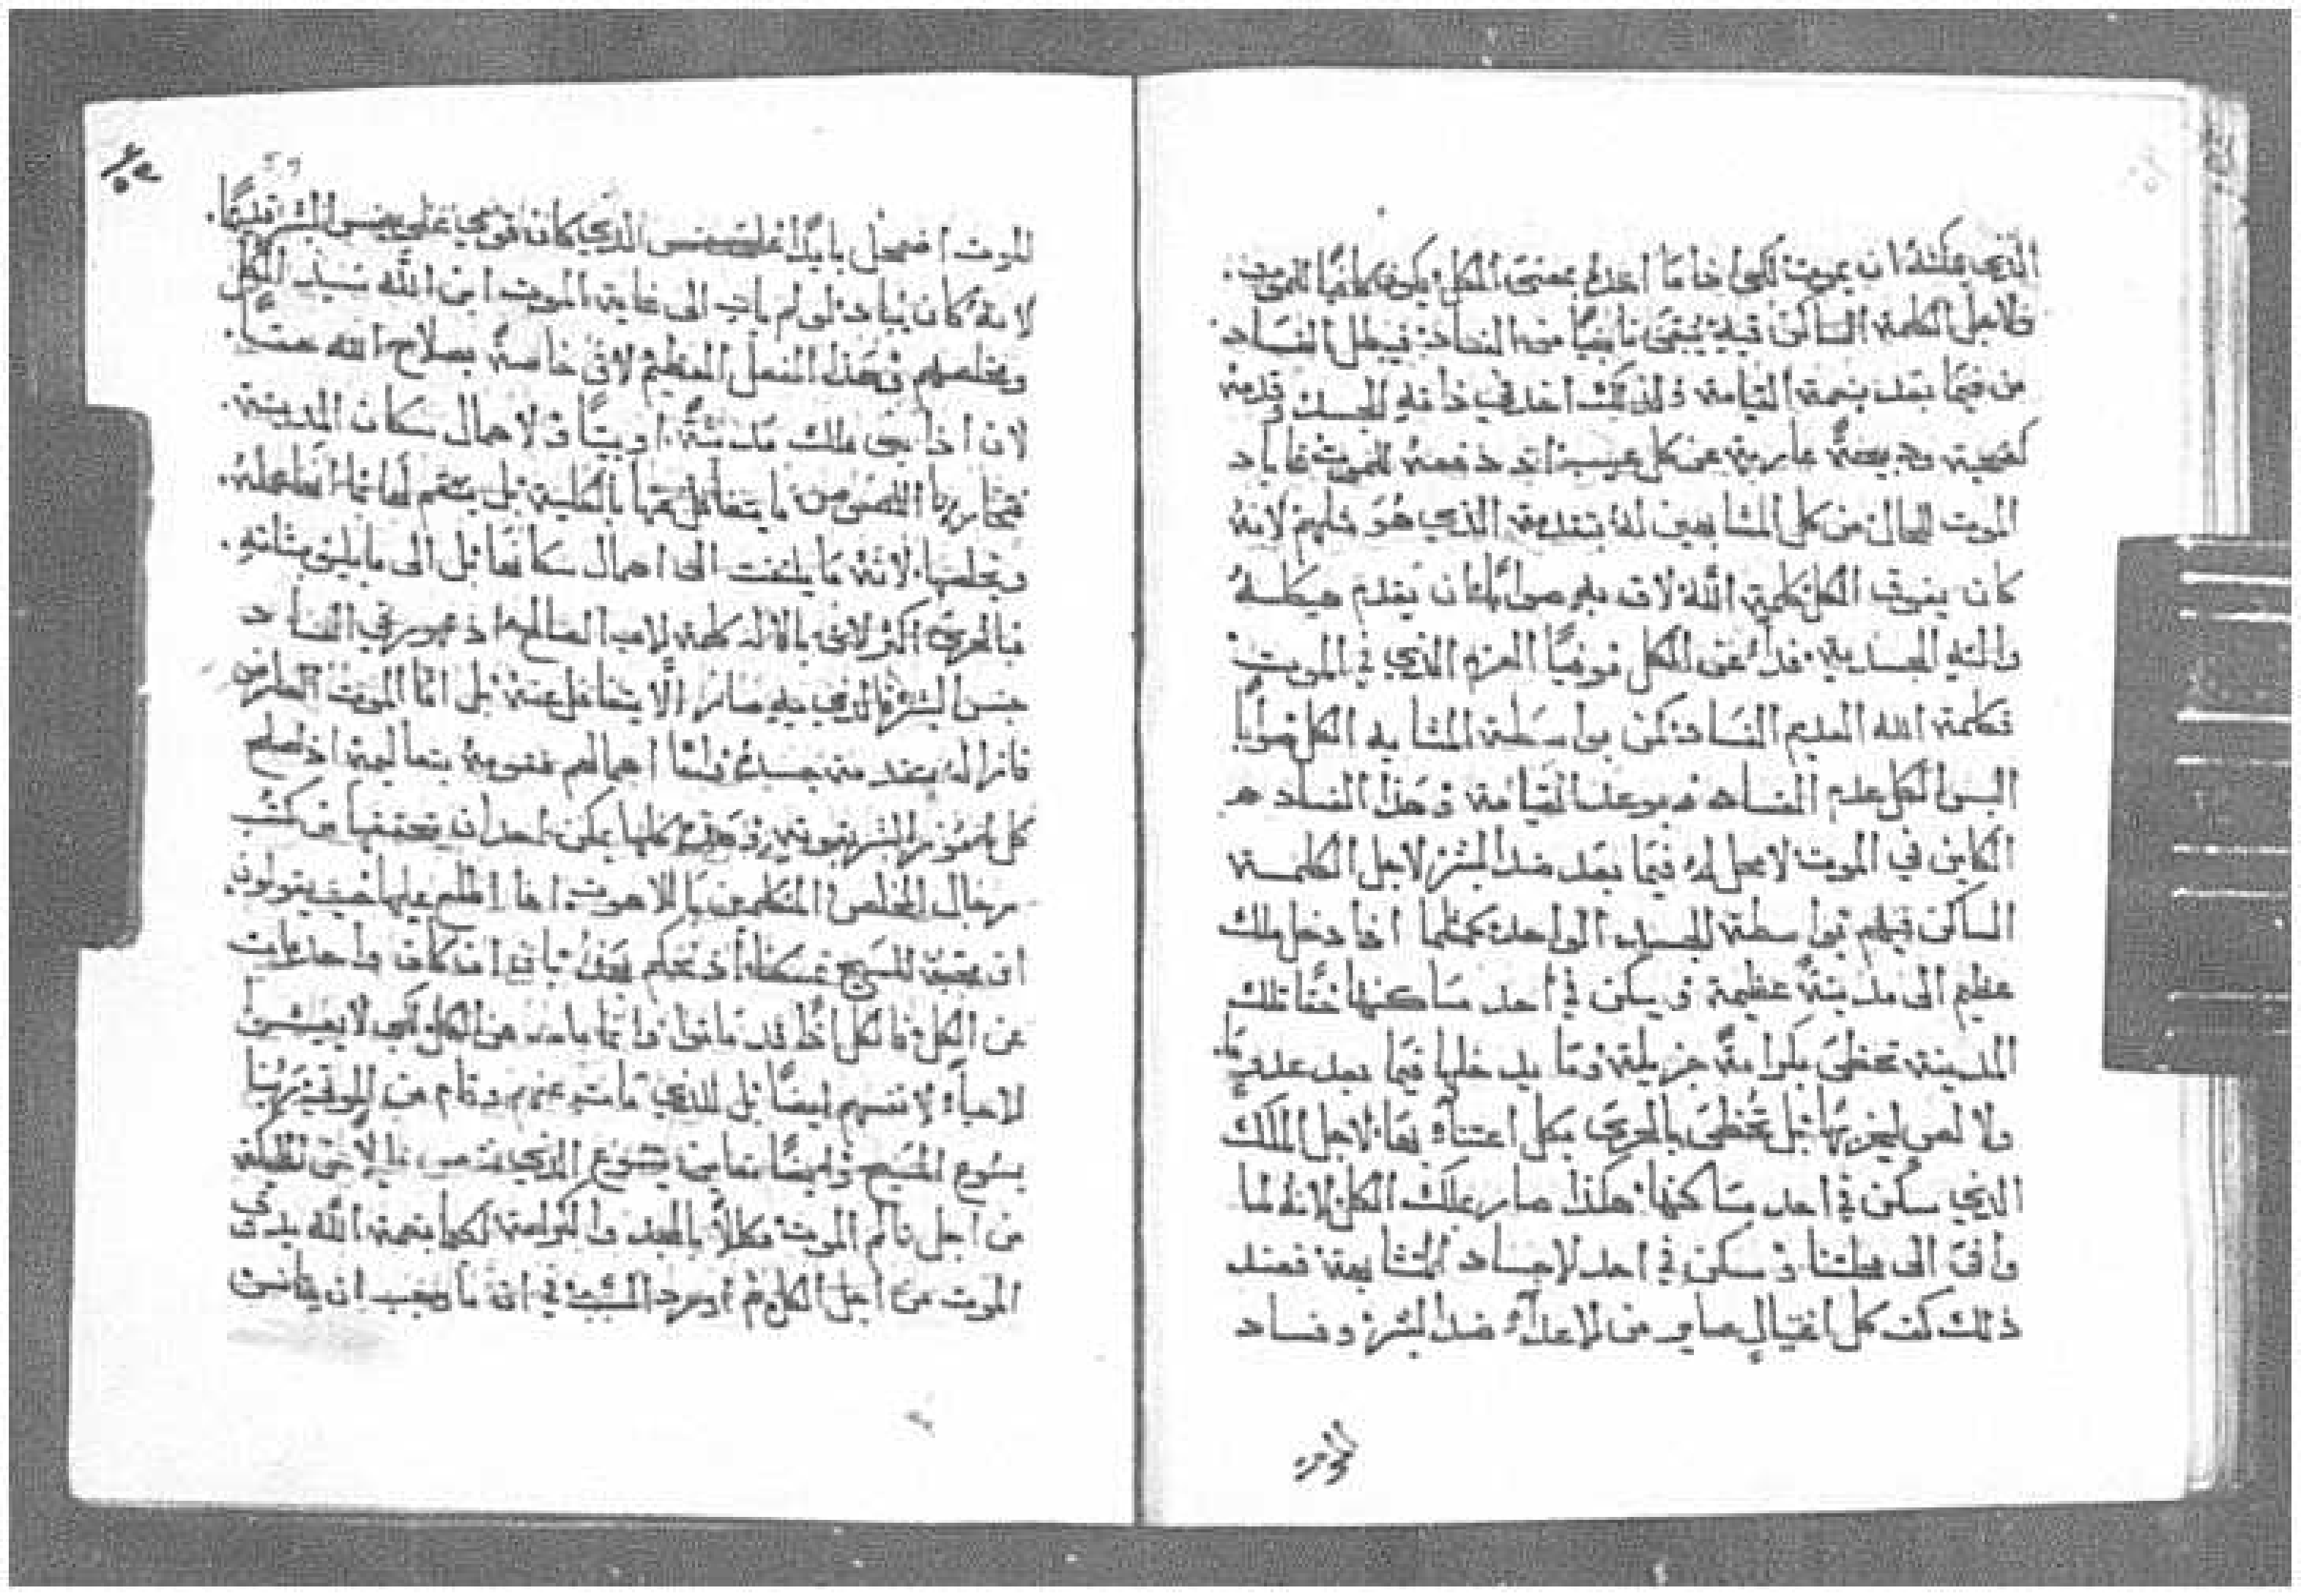 الذي يمكنه ان يموت لكي اذا ما اخذه بمعنى الكل يكون كافيًا للموت.
ولاجل الكلمة الساكن فيه يبقى من الفساد فيبطل الفساد
من فيما بعد بنعمة القيامة ولذلك اخذ في ذاته الجسد وقدمه
كضحية وذبيحة عارية عن كل عيب اذ دفعه للموت فاباد
الموت للحال من كل المشابهين له بتقدمة الذي هو مثلهم لانه
كان يفوق الكل كلمة الله لاق به صوابًا ان يقدم هيكله
والته الجسدية فداءً عن الكل موفيًا العزم الذي في الموت
فكلمة الله العديم الفساد لكن بواسطة المشابه الكل صوابًا
البس الكل عدم الفساد بموعد القيامة وهذا الفساد
الكاين في الموت لا محل له فيما بعد ضد البشر لاجل الكلمة
الساكن فيهم بواسطة الجسد الواحد كمثلما اذا دخل ملك
عظيم الى مدينة عظيمة ويسكن في احد مساكنها حقًا تلك
المدينة تحظى بكرامة جزيلة وما يدخلها فيما بعد عدو
ولا لص ليخربها بل تحظى بالحرى بكل اعتناء بها لاجل الملك
الذي سكن في احد مساكنها هكذا صار بملك الكل لانه لما
وافى الى محلتنا وسكن في احد الاجساد المشابهة فعند
ذلك كف كل اغتيال صاير من الاعداء ضد البشر وفساد
الموت
الموت اضمحل بايدًا الذي كان قوي على جنس البشر قديمًا.
لانه كان يباد لو لم يات الى غاية الموت ابن الله سيد الكل
ومخلصهم وهذا الفعل العظيم لاق خاصةً بصلاح الله حقًا.
لان اذا بنى ملك مدينةً او بيتًا ولاهمال سكان المدينة.
اللصوص ما يتغافل عنها بالكلية بل ينتقم
ويخلصها لانه ما يلتفت الى اهمال سكانها بل الى ما يليق بشانه.
فبالحرى اكثر الاله كلمة الاب الصالح اذ في الفساد
جنس البشر الذي به صار الَّا يتغافل عنه بل اما الموت العارض
فازاله بتقدمة جسده واما اهمالهم فقومه بتعاليمه اذ اصلح
كل امور البشر بقوته وهذه كلها يمكن احد ان يحققها من كتب
رجال المخلص المتكلمين باللاهوت اذا اطلع عليها حيث يقولون
ان محبة المسيح تمسكنا اذ نحكم بهذا بان ان كان واحد مات
عن الكل فالكل اذًا قد ماتوا وانما مات عن الكل لكي لا يعيشون
الاحياء لانفسهم ايضًا بل للذي مات عنهم وقام من الموتى ربنا
يسوع المسيح وايضًا نعاين يسوع الذي نقص الملايكة
من اجل تالم الموت مكللاً بالمجد والكرامة لكيما بنعمة الله يذوق
الموت من اجل الكل ثم اورد السبب في انه ما وجب ان يتانس